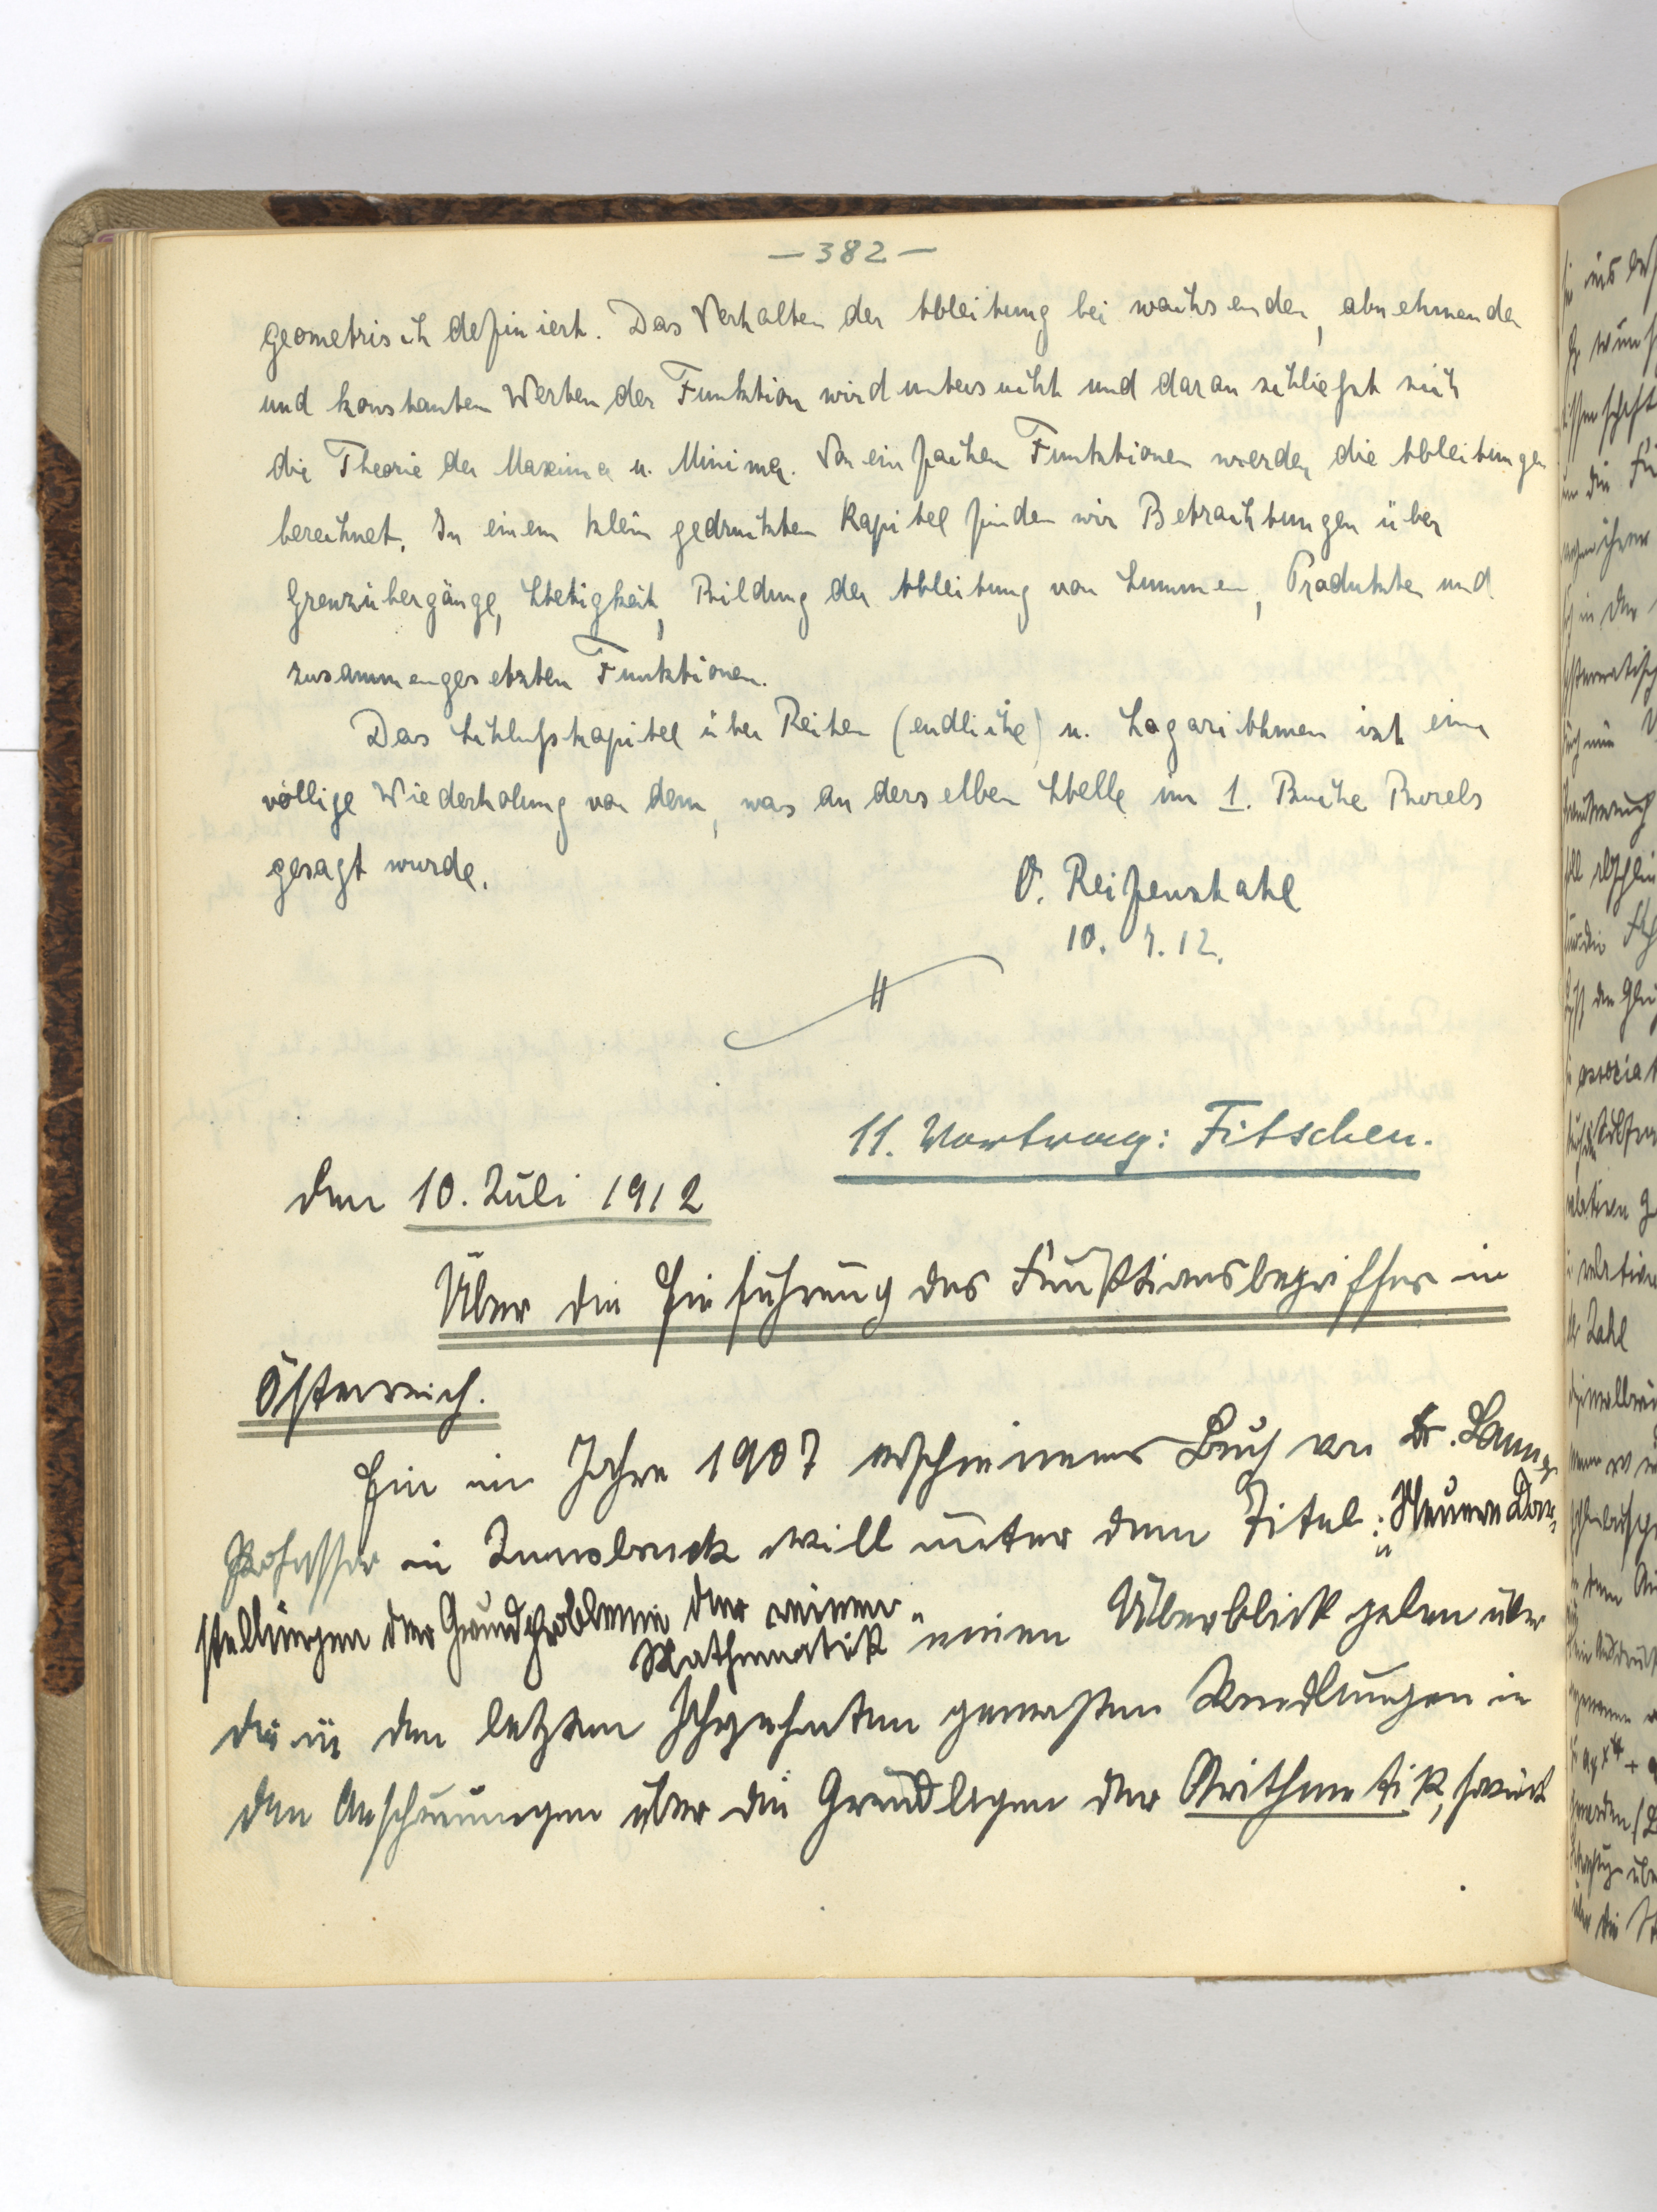 — 382 —
geometrisch definiert. Das Verhalten der Ableitung bei wachsenden, abnehmenden
und konstanten Werten der Funktion wird untersucht und daran schliesst sich
die Theorie der Maxima u. Minima. Von einfachen Funktionen werden die Ableitungen
berechnet. In einem klein gedruckten Kapitel finden wir Betrachtungen über
Grenzübergänge, Stetigkeit, Bildung der Ableitung von Summen, Produkten und
zusammengesetzten Funktionen.
Das Schlusskapitel über Reihen (endliche) u. Logarithmen ist eine
völlige Wiederholung von dem, was an derselben Stelle im 1. Buche Borels
gesagt wurde.
O. Reifenstahl
10. 7. 12.
11. Vortrag: Fitschen.
den 10. Juli 1912
Über die Einführung des Funktionsbegriffes in
Österreich.
Ein im Jahre 1907 erschienenes Buch von Dr.
Professor in Innsbruck will unter dem Titel: „Neuere Dar-
stellungen der Grundprobleme der reinen
Mathematik“ einen Überblick geben über
die in den letzten Jahrzehnten gemachten Wandlungen in
den Anschauungen über die Grundlagen der Arithmetik, soweit